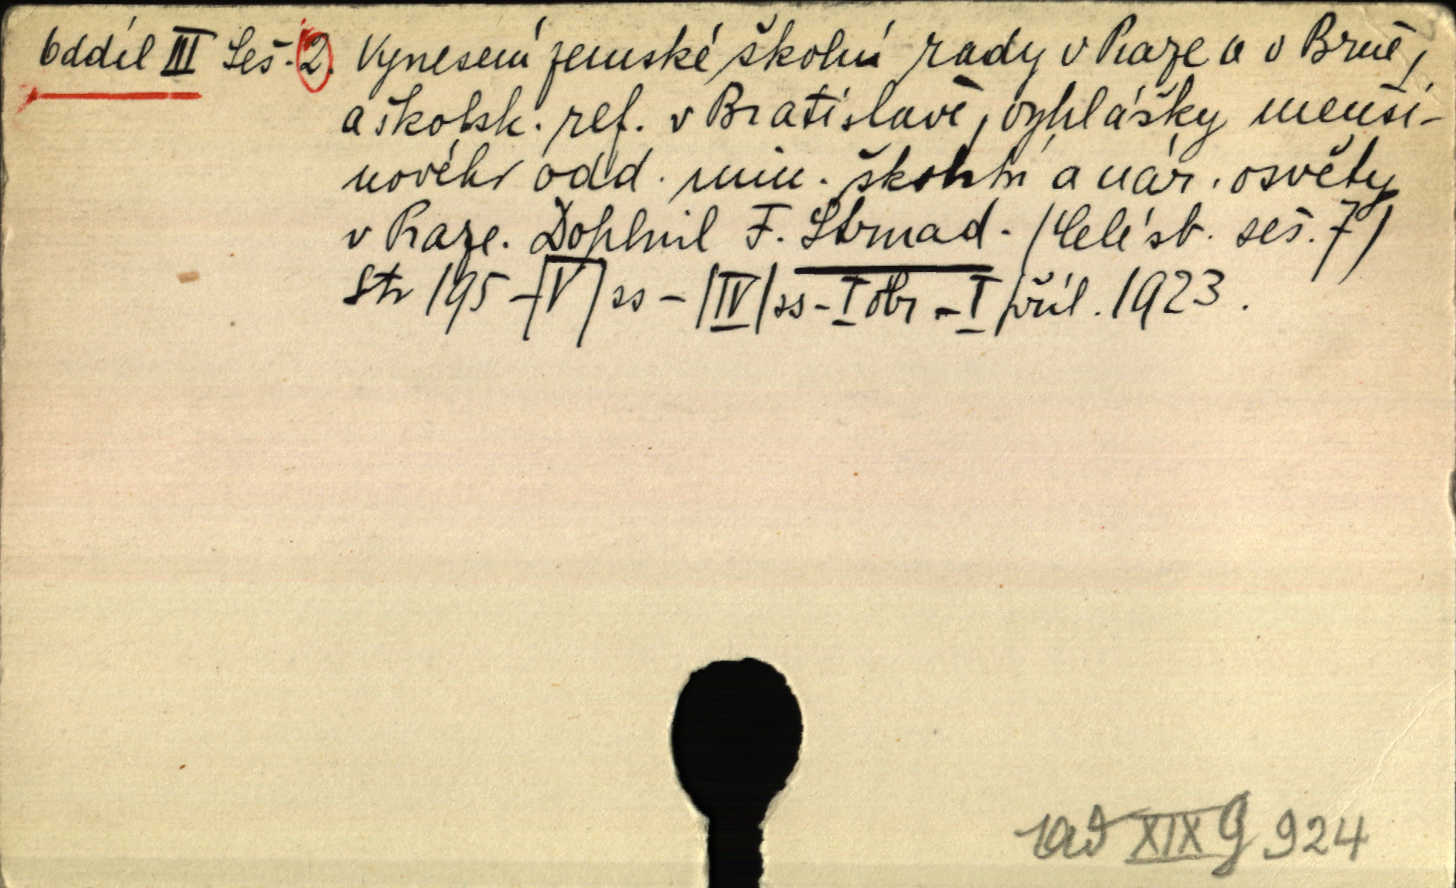 Oddíl III Seš. 2. Vynesení zemské školní rady v Praze a v Brně,
a školsk. ref. v Bratislavě, vyhlášky menši-
nového odd. min. školství a nár. osvěty
v Praze. Doplnil F. Strnad. (Celé sb. seš. 7)
Str 195 - (V) ss - (IV) ss - I obr - I příl. 1923.
XIX G 924